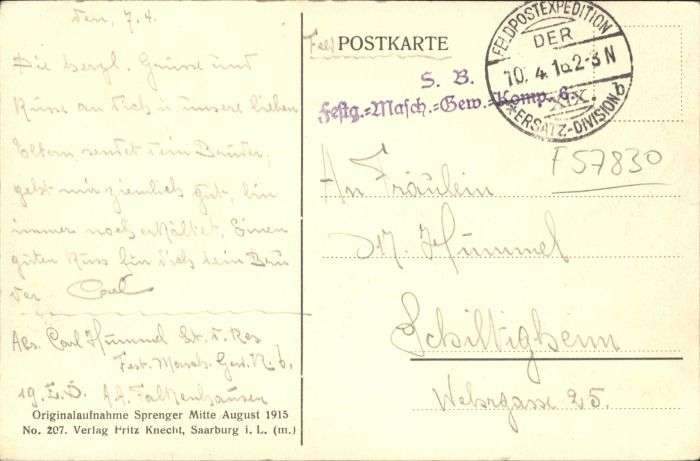 den, 7.4.
Die herzl. Grüsse und
Küsse an dich u. unsere lieben
Eltern sendet dein Bruder,
geht mir ziemlich gut, bin
immer noch erkältet. Einen
guten Kuss bin dich dein Bru
der Carl
Abs. Carl Hummel
Fest. Masch. Gew. K. 6,
19. E. D. A.A. Falkenhausen
Originalaufnahme Sprenger Mitte August 1915
No. 207. Verlag Fritz Knecht, Saarburg i. L. (m.)
Feld POSTKARTE
S. B.
Festg.=Masch.=Gew.=Komp. 6.
FELDPOSTEXPEDITION
DER
10. 4. 16. 2-3 N
XIX
*ERSATZ-DIVISION b
F57830
An Fräulein
M. Hummel
Schiltigheim
Wehrgasse 25.